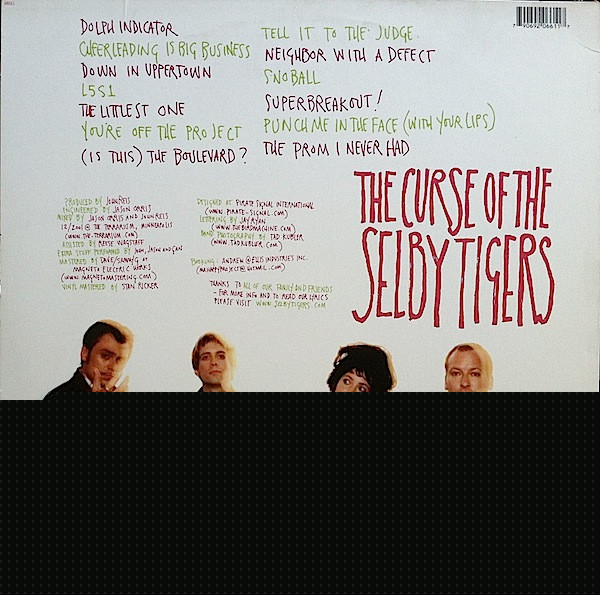 DOLPH INDICATOR
CHEERLEADING IS BIG BUSINESS
DOWN IN UPPERTOWN
L5S1
THE LITTLEST ONE
YOU'RE OFF THE PROJECT
(IS THIS) THE BOULEVARD?
TELL IT TO THE JUDGE
NEIGHBOR WITH A DEFECT
SNOBALL
SUPERBREAKOUT!
PUNCH ME IN THE FACE (WITH YOUR LIPS)
THE PROM I NEVER HAD
7 90692 06611 7
THE CURSE OF THE
SELBY TIGERS
PRODUCED BY JOHN REIS
ENGINEERED BY JASON ORRIS
MIXED BY JASON ORRIS AND JOHN REIS
12/2001 @ THE TERRARIUM, MINNEAPOLIS
(WWW.THE-TERRARIUM.COM)
ASSISTED BY REESE WAGSTAFF
EXTRA STUFF PERFORMED BY JOHN, JASON AND GAN
MASTERED BY DAVE GARDNER @
MAGNETO ELECTRIC WORKS
(WWW.MAGNETOMASTERING.COM)
VINYL MASTERED BY STAN RICKER
DESIGNED AT PIRATE SIGNAL INTERNATIONAL
(WWW.PIRATE-SIGNAL.COM)
LETTERING BY JAY RYAN
(WWW.THEBIRDMACHINE.COM)
BAND PHOTOGRAPHY BY TAD KUBLER
(WWW.TADKUBLER.COM)
BOOKING: ANDREW @ ELLIS INDUSTRIES INC.
THANKS TO ALL OF OUR FAMILY AND FRIENDS
- FOR MORE INFO AND TO READ OUR LYRICS
PLEASE VISIT WWW.SELBYTIGERS.COM